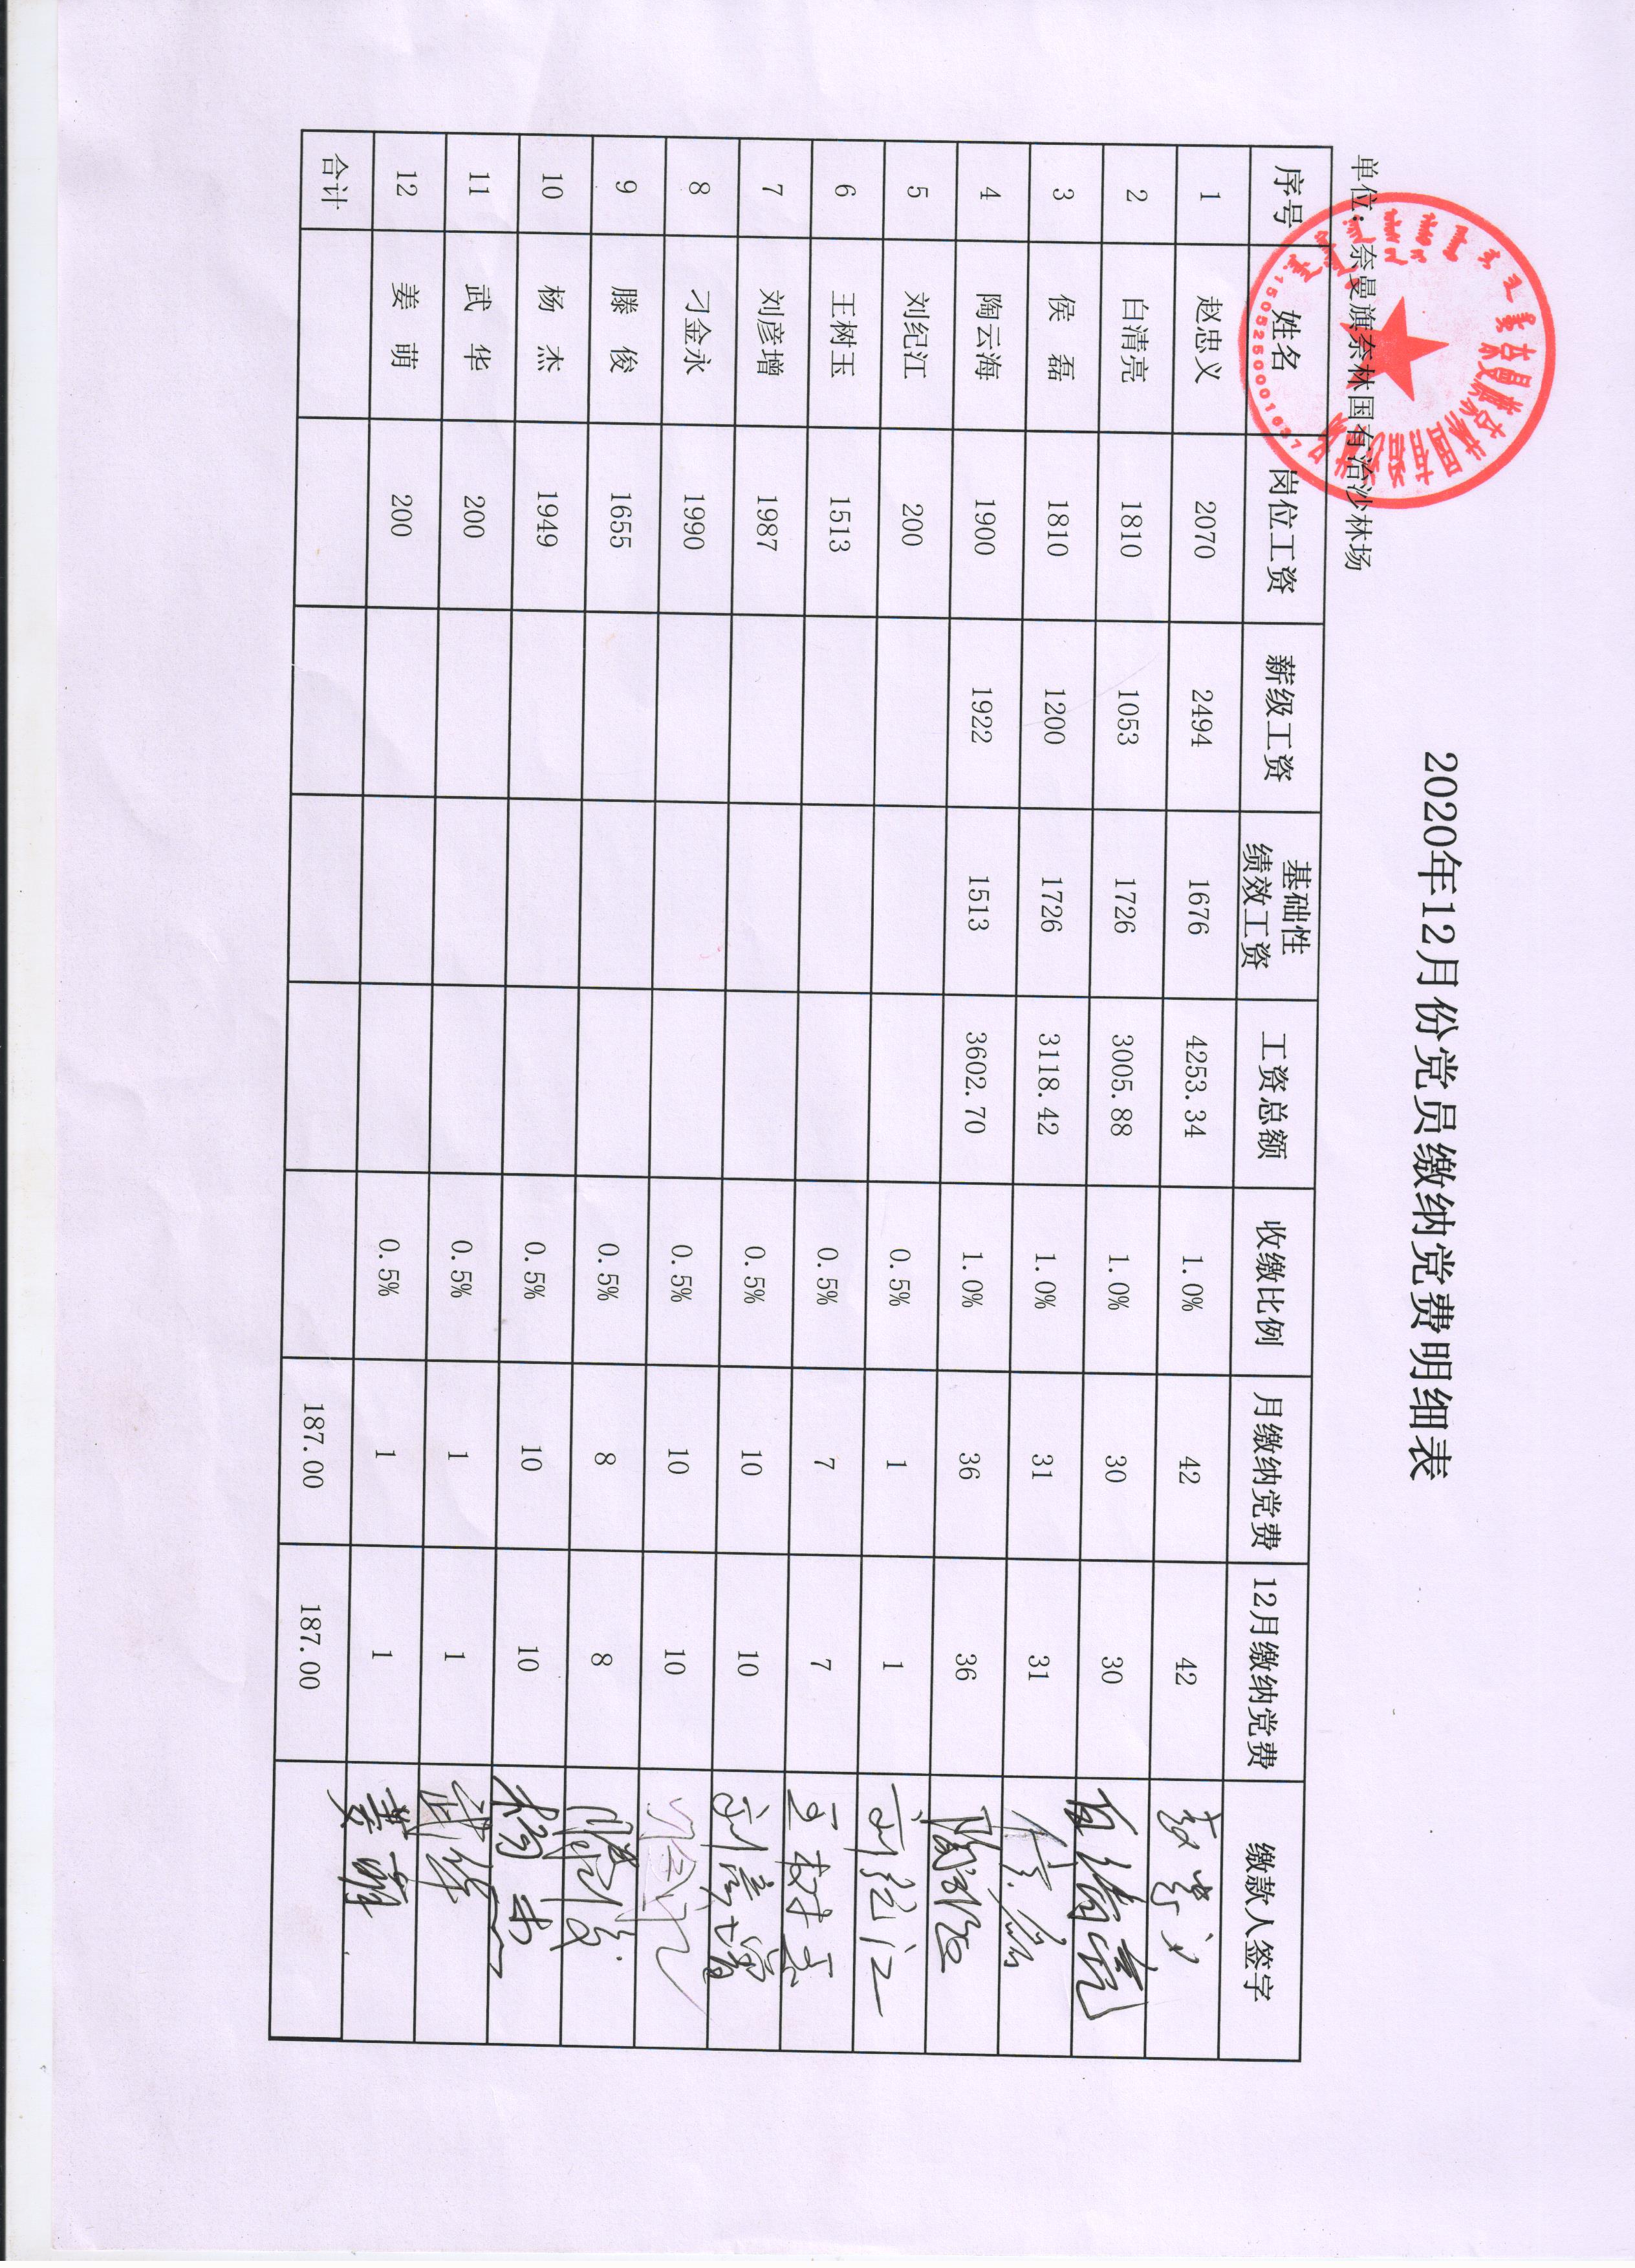 2020年12月份党员缴纳党费明细表
单位：奈曼旗奈林国有治沙林场
1505250001637
序号 姓名 岗位工资 薪级工资 基础性绩效工资 工资总额 收缴比例 月缴纳党费 12月缴纳党费 缴款人签字
1 赵忠义 2070 2494 1676 4253.34 1.0% 42 42 赵忠义
2 白清亮 1810 1053 1726 3005.88 1.0% 30 30 白清亮
3 侯 磊 1810 1200 1726 3118.42 1.0% 31 31 侯磊
4 陶云海 1900 1922 1513 3602.70 1.0% 36 36 陶云海
5 刘纪江 200 0.5% 1 1 刘纪江
6 王树玉 1513 0.5% 7 7 王树玉
7 刘彦增 1987 0.5% 10 10 刘彦增
8 刁金永 1990 0.5% 10 10
9 滕 俊 1655 0.5% 8 8 滕俊
10 杨 杰 1949 0.5% 10 10 杨杰
11 武 华 200 0.5% 1 1 武华
12 姜 萌 200 0.5% 1 1 姜萌
合计 187.00 187.00